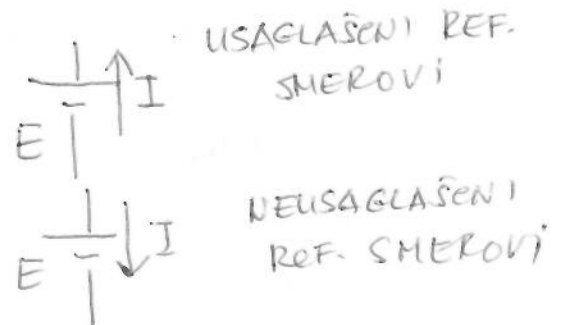 USAGLAŠENI REF.
SMEROVI
I
E
NEUSAGLAŠENI
REF. SMEROVI
I
E